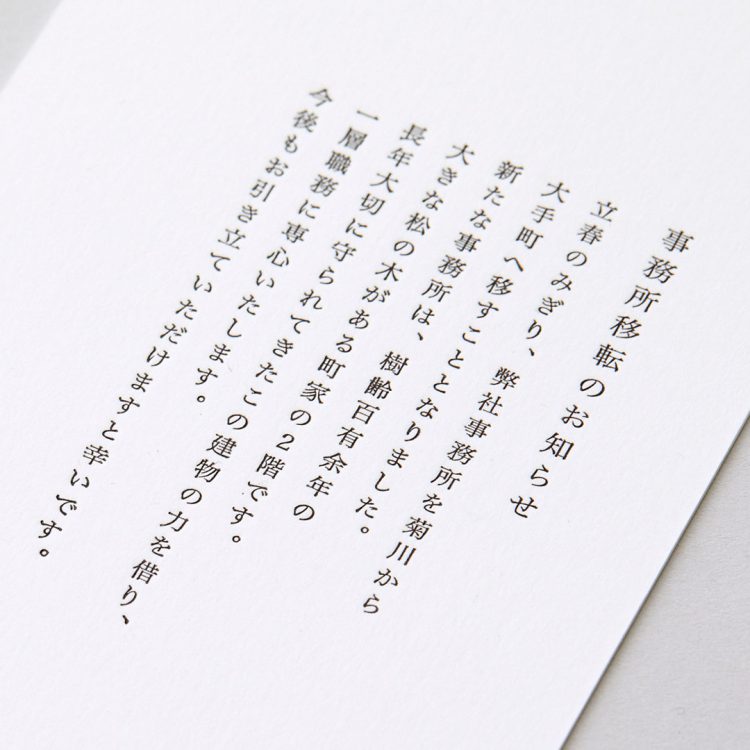 事務所移転のお知らせ
立春のみぎり、弊社事務所を菊川から
大手町へ移すこととなりました。
新たな事務所は、樹齢百有余年の
大きな松の木がある町家の2階です。
長年大切に守られてきたこの建物の力を借り、
一層職務に専心いたします。
今後もお引き立ていただけますと幸いです。